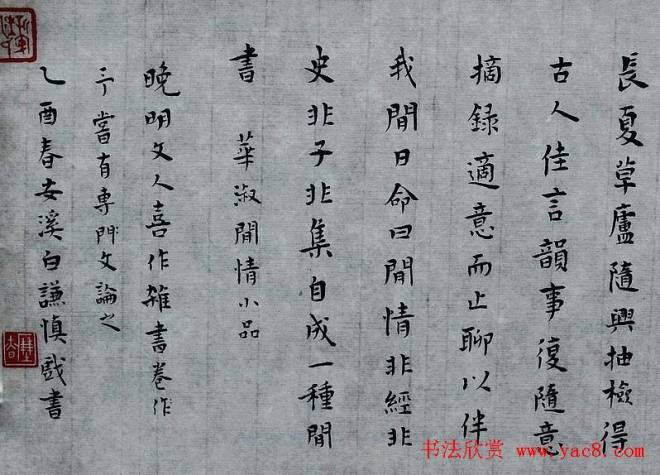 長夏草廬隨興抽檢得
古人佳言韻事復隨意
摘録適意而止聊以伴
我閒日命曰閒情非經非
史非子非集自成一種閒
書 華淑閒情小品
晚明文人喜作雜書卷作
予嘗有專門文論之
乙酉春安溪白謙慎戲書
书法欣赏 www.yac8.com